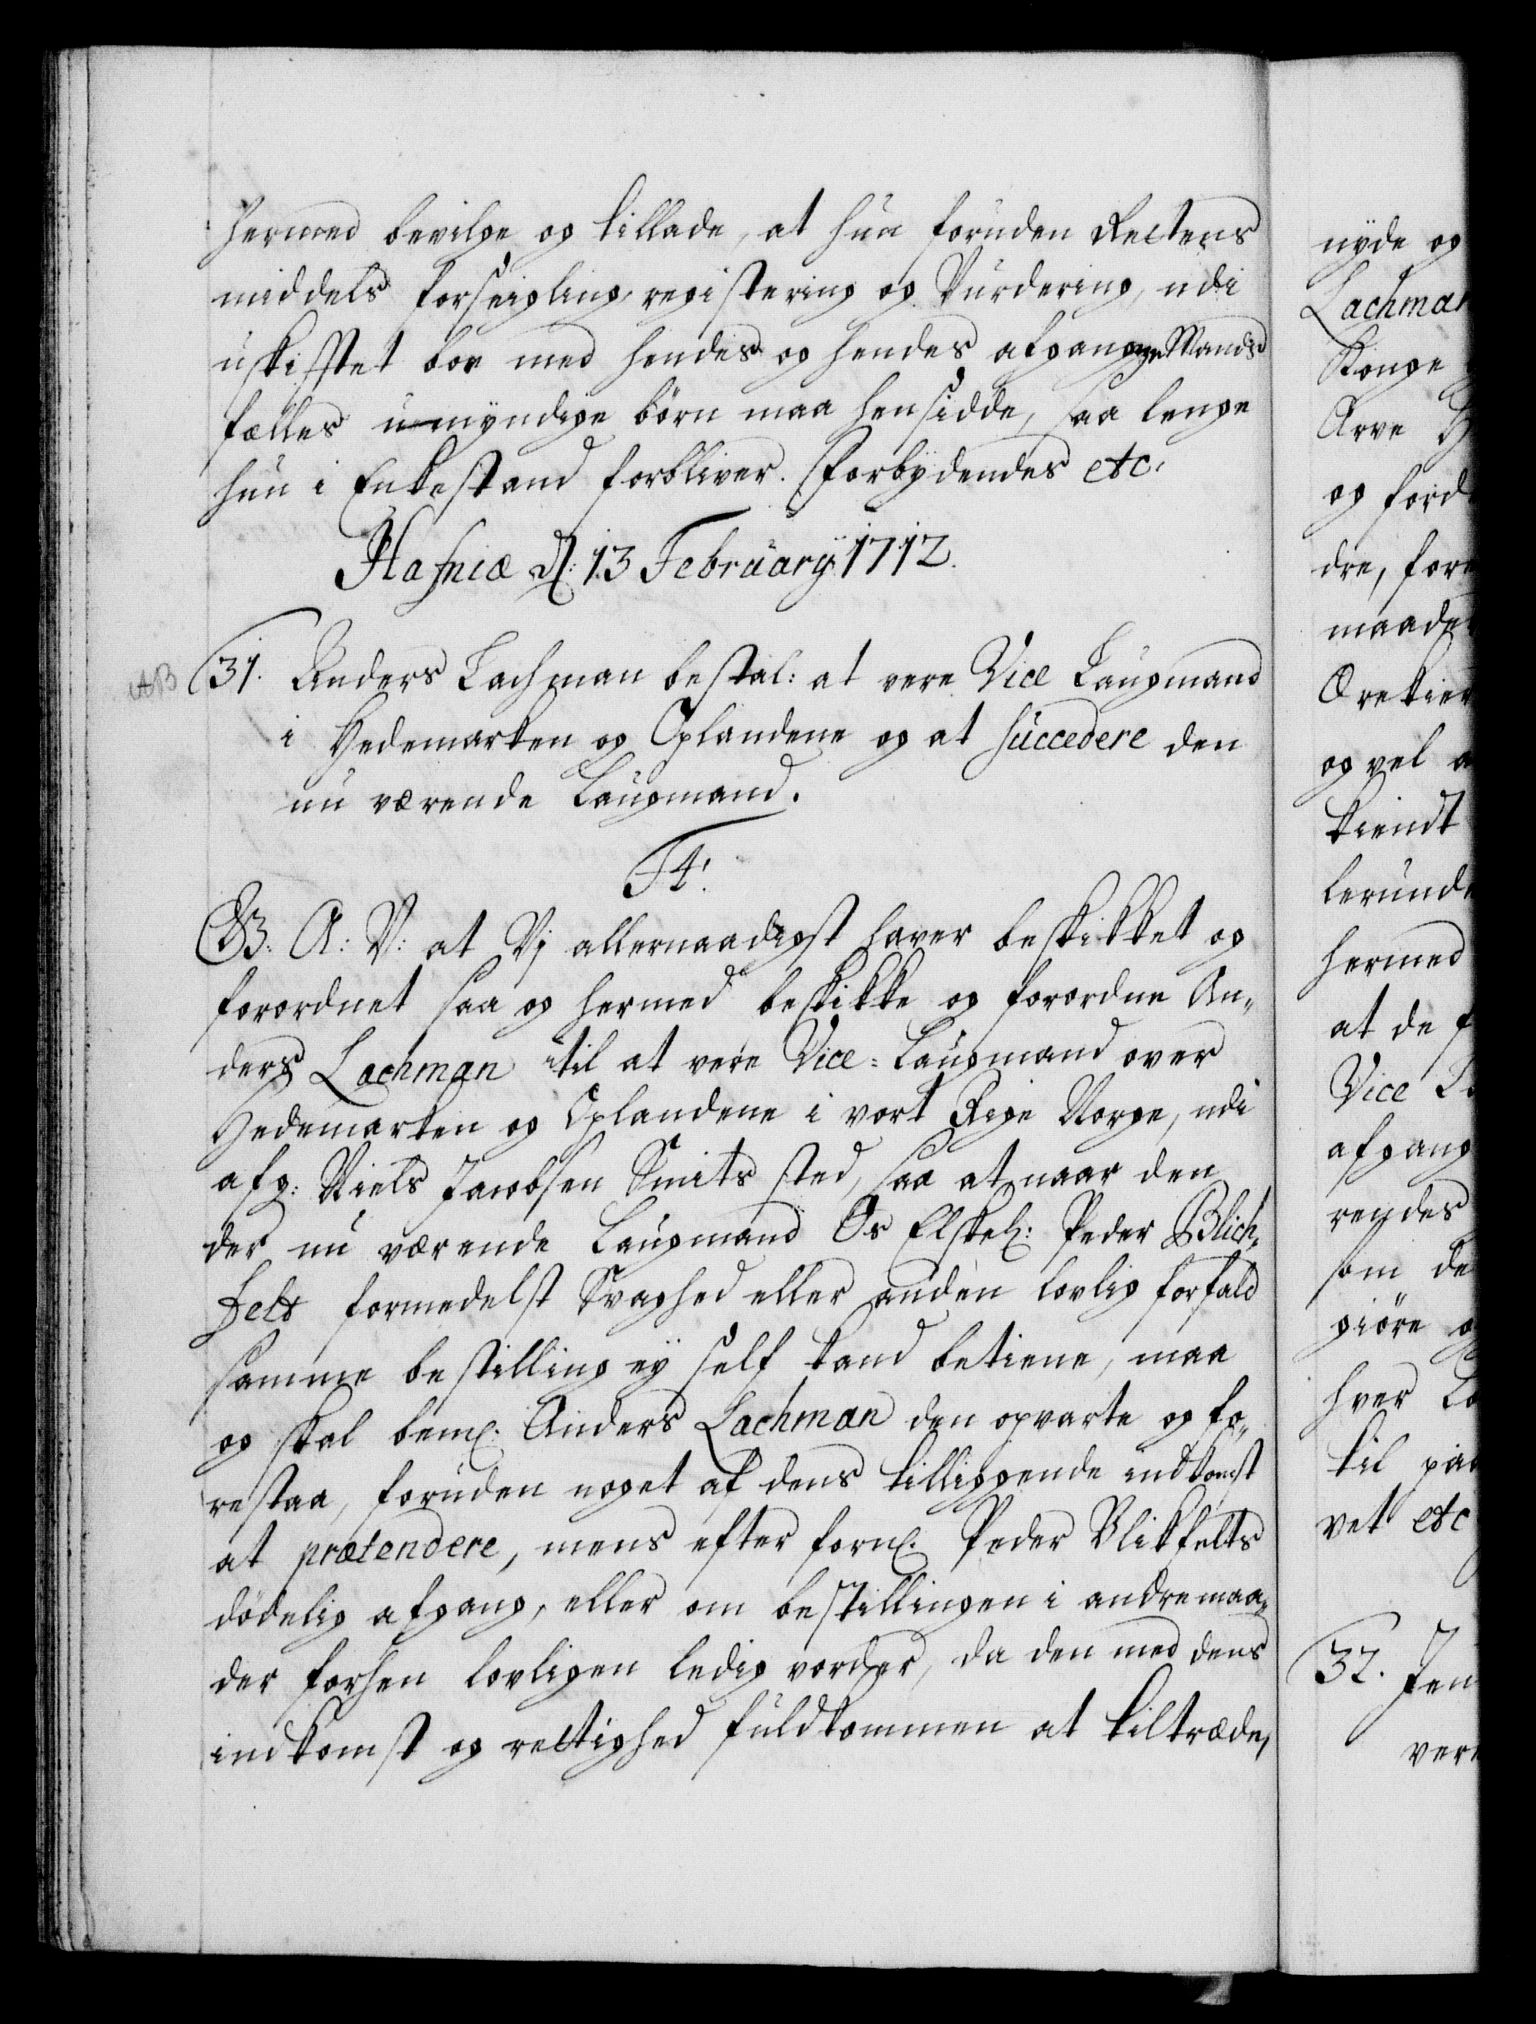 hermed bevilge og tillade, at hun foruden Rettens
middels forseigling, registering og Vurdering, udi
uskifftet boe med hendes og hendes afgangne Mands
fælles umyndige børn maa hensidde, saa lenge
hun i Enkestand forbliver. Forbydendes etc:
Hafniæ d: 13 Februarij 1712.
31. Anders Lachman bestal: at vere Vice Laugmand
i Hedemarken og Oplandene og at succedere den
nu værende Laugmand.
F4:
G. A: V: at Vj allernaadigst haver beskikket og
forordnet saa og hermed beskikke og forordne An„
ders Lachman til at vere Vice=Laugmand over
Hedemarken og Oplandene i vort Rige Norge, udi
afg: Niels Jacobsen Smits sted, saa at naar den
der nu værende Laugmand Os Elskel: Peder Blich„
felt formedelst Svaghed eller anden lovlig forfald
samme bestilling ey self kand betiene, maa
og skal bem: Anders Lachman den opvarte og fo„
restaa, foruden noget af dens tilliggende indkomst
at prætendere, mens efter forn: Peder Blikfelts
dødelig afgang, eller om bestillingen i andre maa„
der forhen lovligen ledig vorder, da den med dens
indkomst og rettighed fuldkommen at tiltræde,
nyde og
Lachman
Konge
Arve
og
dre,
maade
og vel
kiendt
hermed
at de
Vice
afgang
rendes
som de
giøre
hver
til
vet etc
32. Jen
vere